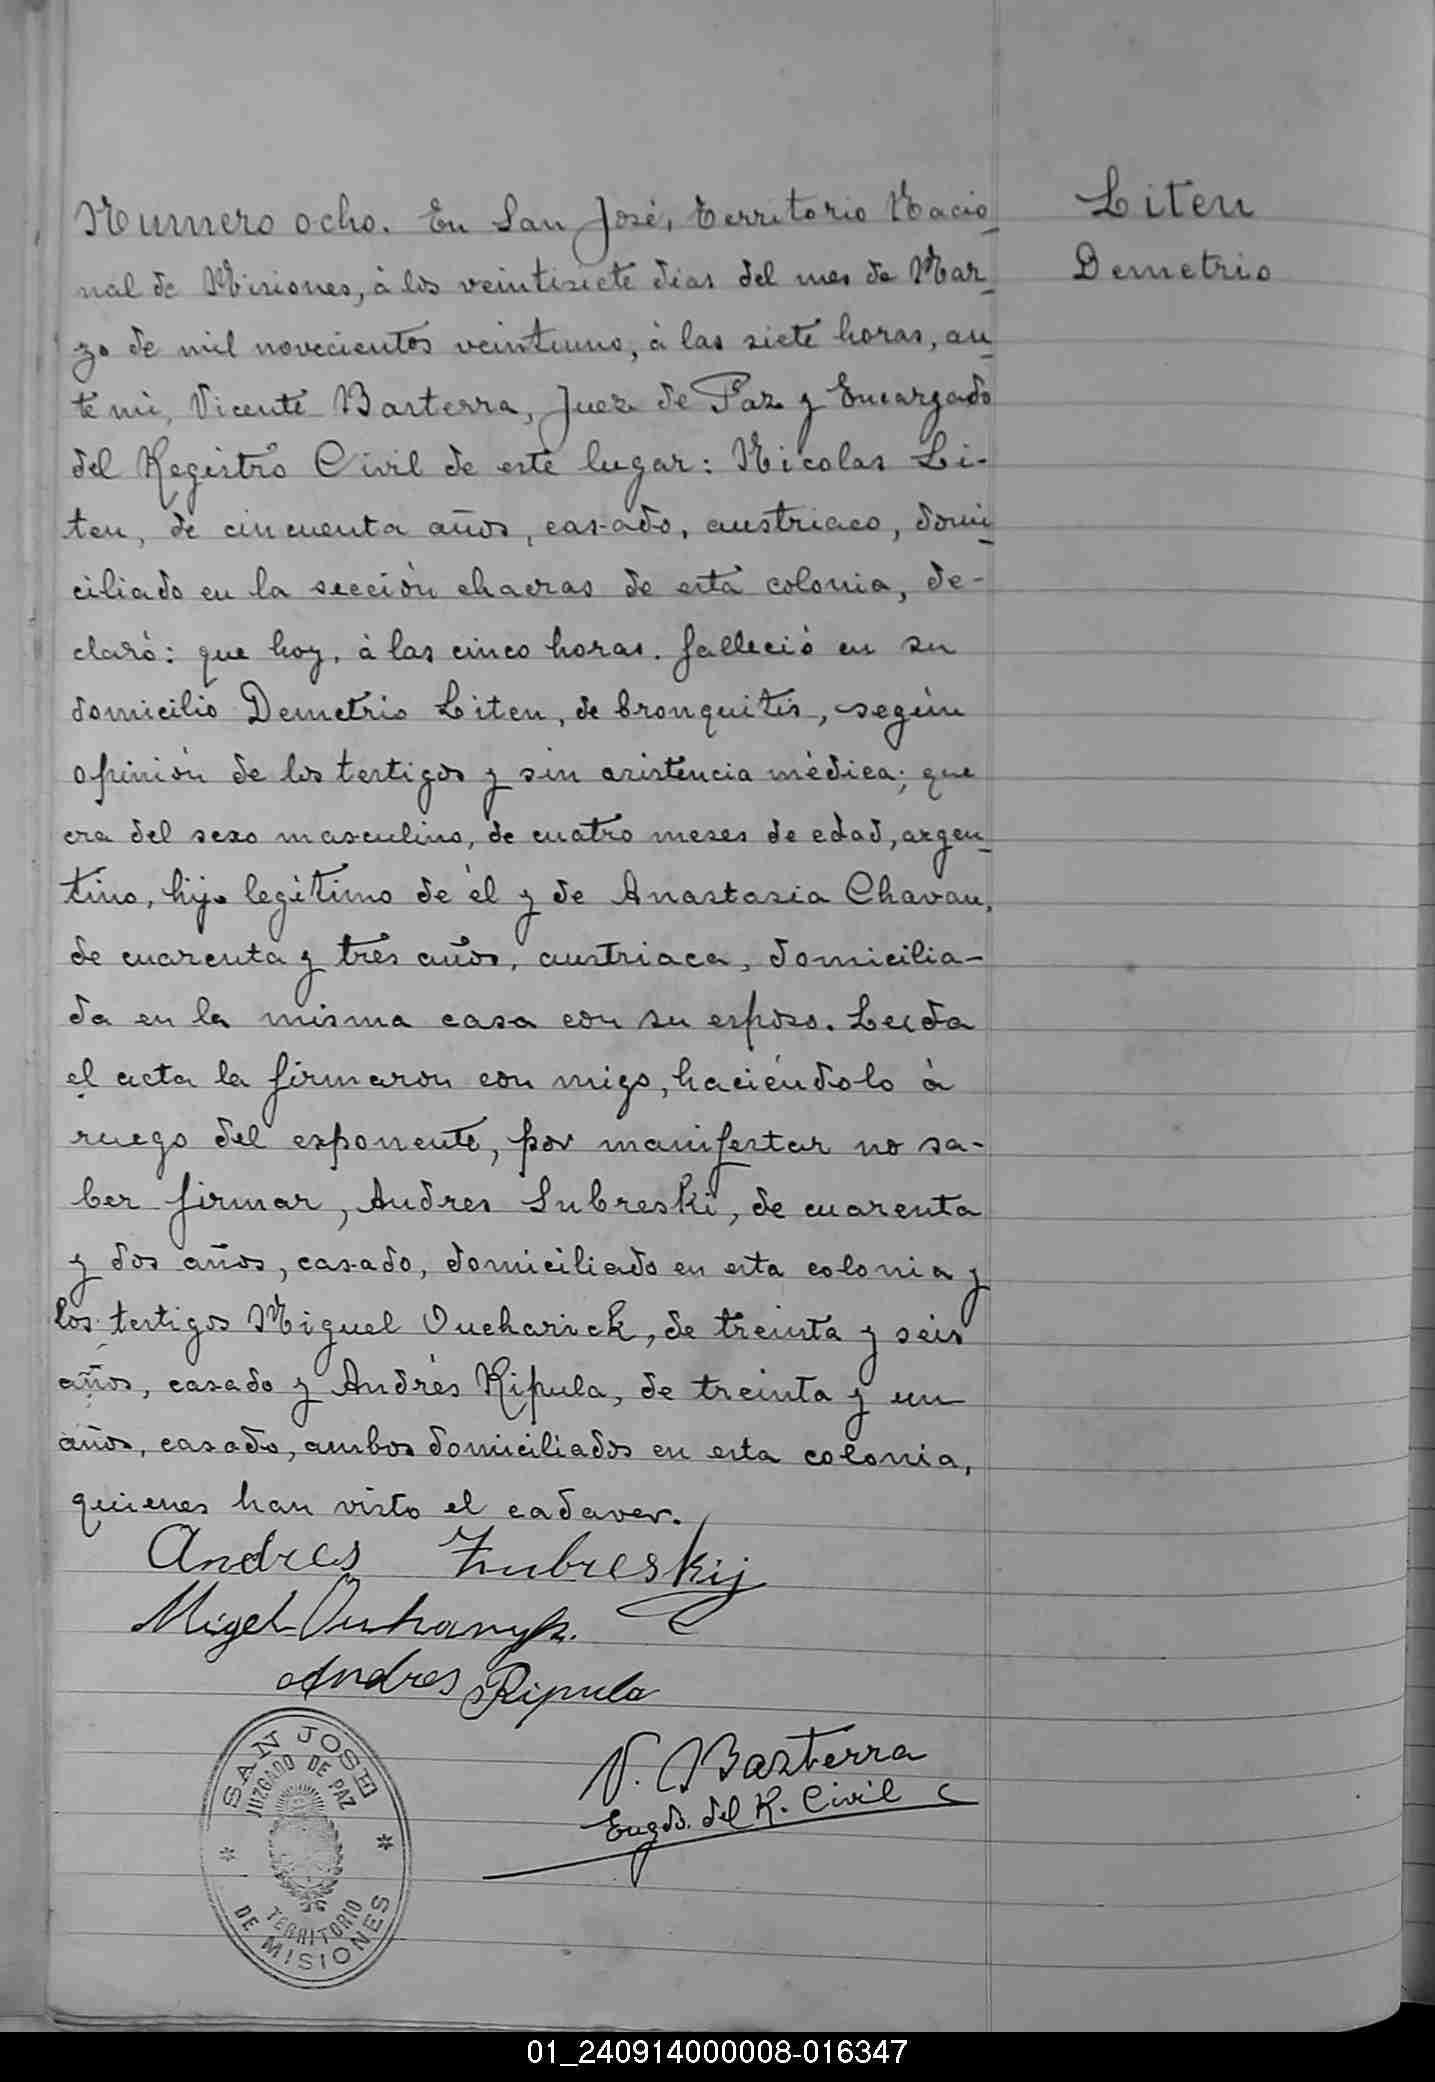 Numero ocho. En San José, Territorio Nacio-
nal de Misiones, à los veintisiete dias del mes de Mar-
zo de mil novecientos veintiuno, à las siete horas, an-
te mi, Vicente Basterra, Juez de Paz y Encargado
del Registro Civil de este lugar: Nicolas Li-
ten, de cincuenta años, casado, austriaco, domi-
ciliado en la sección chacras de esta colonia, de-
claró: que hoy, à las cinco horas. falleció en su
domicilio Demetrio Liten, de bronquitis, según
opinión de los testigos y sin asistencia mèdica; que
era del sexo masculino, de cuatro meses de edad, argen-
tino, hijo legítimo de èl y de Anastasia Chavan,
de cuarenta y tres años, austriaca, domicilia-
da en la misma casa con su esposo. Leida
el acta la firmaron con migo, haciéndolo à
ruego del exponente, por manifestar no sa-
ber firmar, Andres Subreski, de cuarenta
y dos años, casado, domiciliado en esta colonia y
los testigos Miguel Oucharick, de treinta y seis
años, casado y Andrès Ripula, de treinta y un
años, casado, ambos domiciliados en esta colonia,
quienes han visto el cadaver.
Andres Zubreskij
Migel
Andres Ripula
V. Basterra
Engdo. del R. Civil
Liten
Demetrio
SAN JOSE
JUZGADO DE PAZ
TERRITORIO
DE MISIONES
01_240914000008-016347